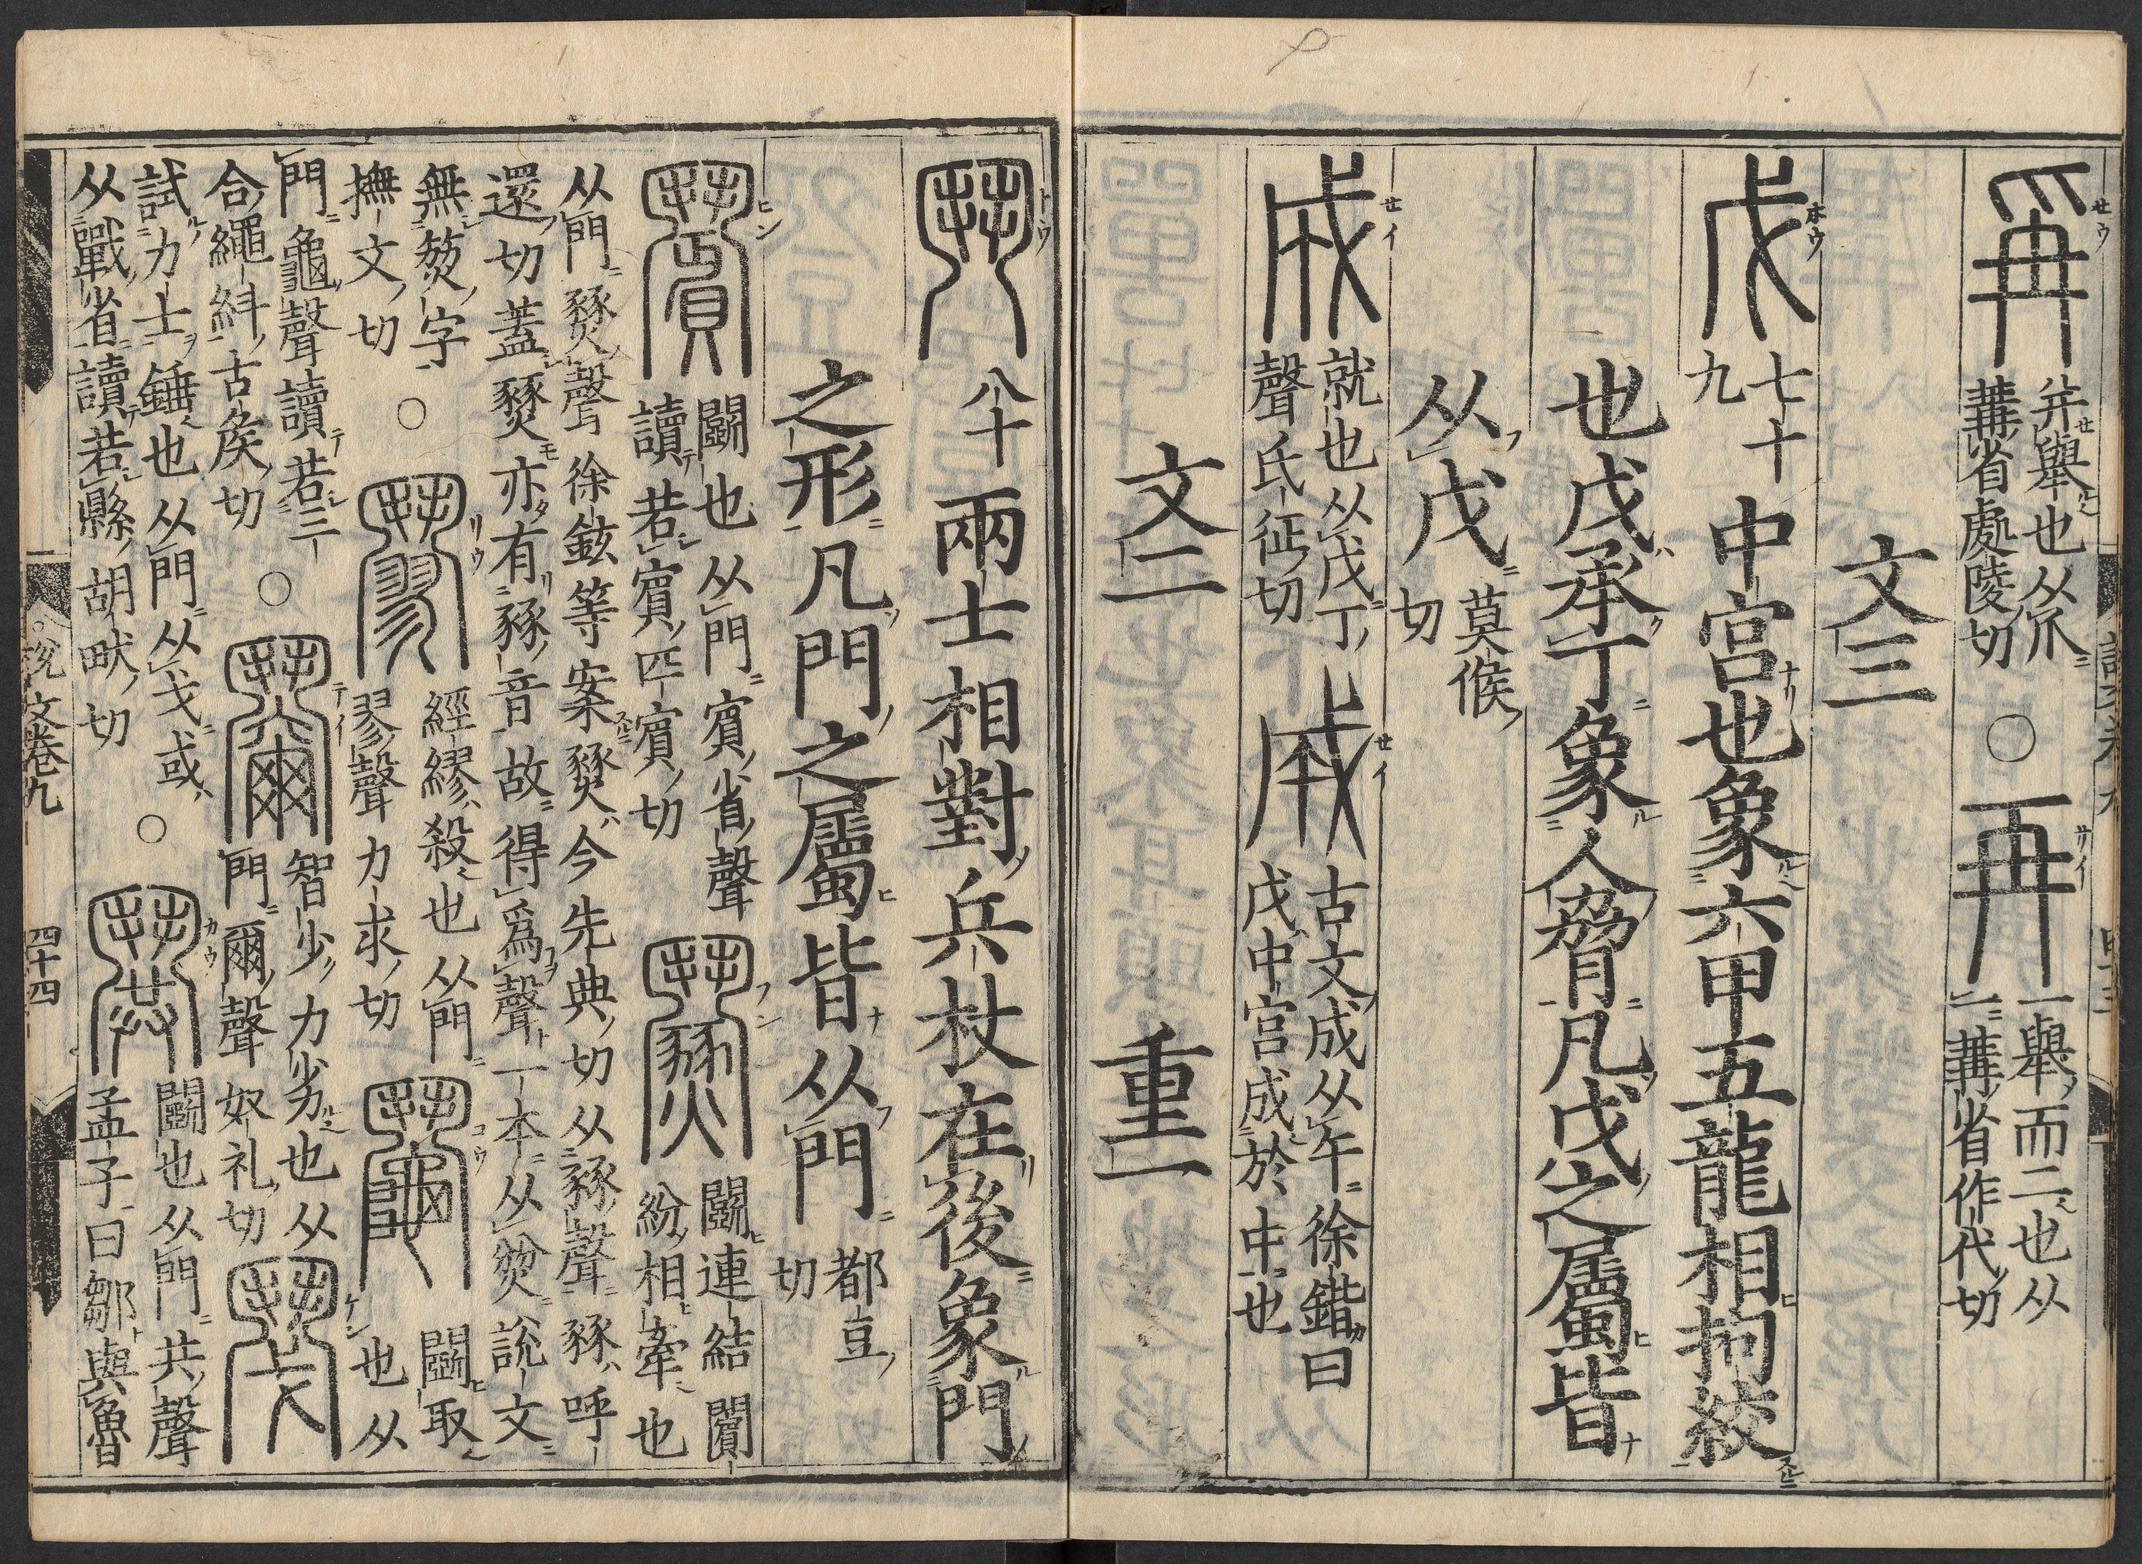 爯 并舉也从爪
冓省處陵切
○
再 一舉而二也从
一冓省作代切
文三
戊 七十
九
中宮也象六甲五龍相拘絞
也戊承丁象人脅凡戊之屬皆
从戊 莫候
切
成 就也从戊丁
聲氏征切
古文成从午徐鍇曰
戊中宮成於中也
文二 重一
鬥 八十 兩士相對兵杖在後象鬥
之形凡鬥之屬皆从鬥 都豆
切
鬭也从鬥賓省聲
讀若賓匹賓切
鬭連結闠
紛相牽也
从鬥燹聲徐鉉等案燹今先典切从豩聲豩呼
還切蓋燹亦有豩音故得爲聲一本从㷊説文
無㷊字
撫文切
○
經繆殺也从鬥
翏聲力求切
鬭取
也从
鬥龜聲讀若三
合繩糾古矦切
○
智少力劣也从
鬥爾聲奴礼切
試力士錘也从鬥从戈或
从戰省讀若縣胡畎切
○
鬭也从鬥共聲
孟子曰鄒與魯
説文卷九 四十四